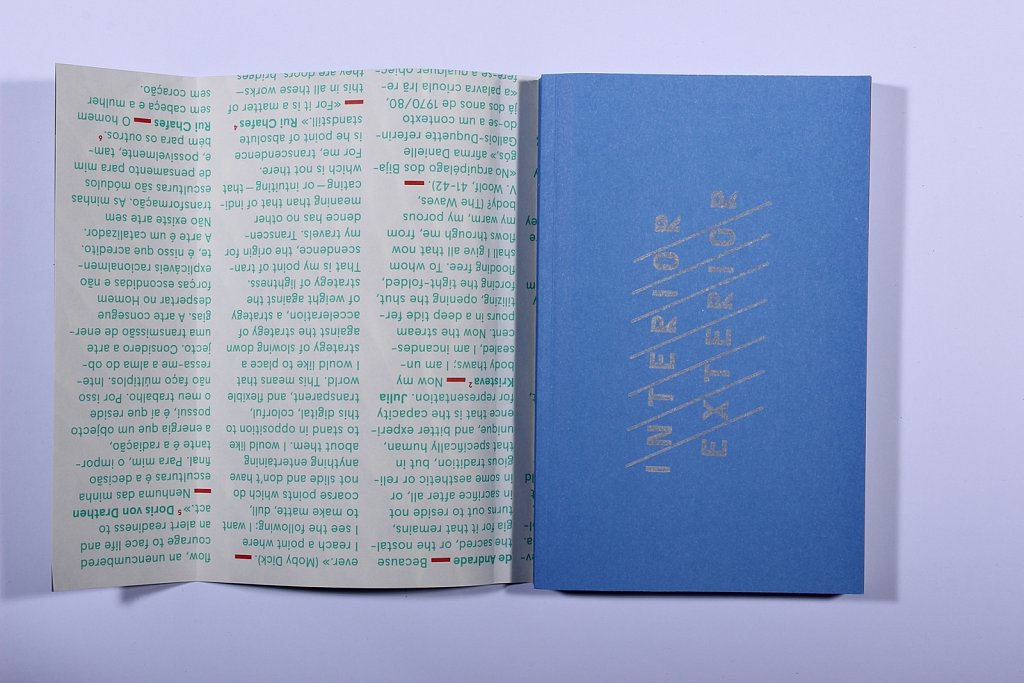 de Andrade — Because
the sacred, or the nostal-
gia for it that remains,
turns out to reside not
in sacrifice after all, or
in some aesthetic or reli-
gious tradition, but in
that specifically human,
unique, and bitter experi-
ence that is the capacity
for representation. Julia
Kristeva ² — Now my
body thaws; I am un-
sealed, I am incandes-
cent. Now the stream
pours in a deep tide fer-
tilizing, opening the shut,
forcing the tight-folded,
flooding free. To whom
shall I give all that now
flows through me, from
my warm, my porous
body? (The Waves,
V. Woolf, 41-42). —
«No arquipélago dos Bija-
gós,» afirma Danielle
Gallois-Duquette referin-
do-se a um contexto
já dos anos de 1970/80,
«a palavra crioula Irã re-
fere-se a qualquer objec-
ever.» (Moby Dick). —
I reach a point where
I see the following: I want
to make matte, dull,
coarse points which do
not slide and don't have
anything entertaining
about them. I would like
to stand in opposition to
this digital, colorful,
transparent, and flexible
world. This means that
I would like to place a
strategy of slowing down
against the strategy of
acceleration, a strategy
of weight against the
strategy of lightness.
That is my point of tran-
scendence, the origin for
my travels. Transcen-
dence has no other
meaning than that of indi-
cating – or intuiting – that
which is not there.
For me, transcendence
is he point of absolute
standstill.» Rui Chafes ⁴
— «For it is a matter of
this in all these works–
they are doors, bridges
flow, an unencumbered
courage to face life and
an alert readiness to
act.» ⁵ Doris von Drathen
— Nenhuma das minha
esculturas é a decisão
final. Para mim, o impor-
tante é a radiação,
a energia que um objecto
possui, é aí que reside
o meu trabalho. Por isso
não faço múltiplos. Inte-
ressa-me a alma do ob-
jecto. Considero a arte
uma transmissão de ener-
gias. A arte consegue
despertar no Homem
forças escondidas e não
explicáveis racionalmen-
te, é nisso que acredito.
A arte é um catalizador.
Não existe arte sem
transformação. As minhas
esculturas são módulos
de pensamento para mim
e, possivelmente, tam-
bém para os outros. ⁶
Rui Chafes — O homem
sem a cabeça e a mulher
sem coração.
INTERIOR
EXTERIOR